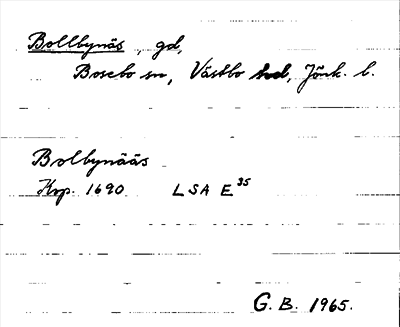 Bollbynäs, gd,
Bosebo sn, Västbo hd, Jönk. l.
Bolbynääs
Krp. 1690 LSA E 35
G. B. 1965.